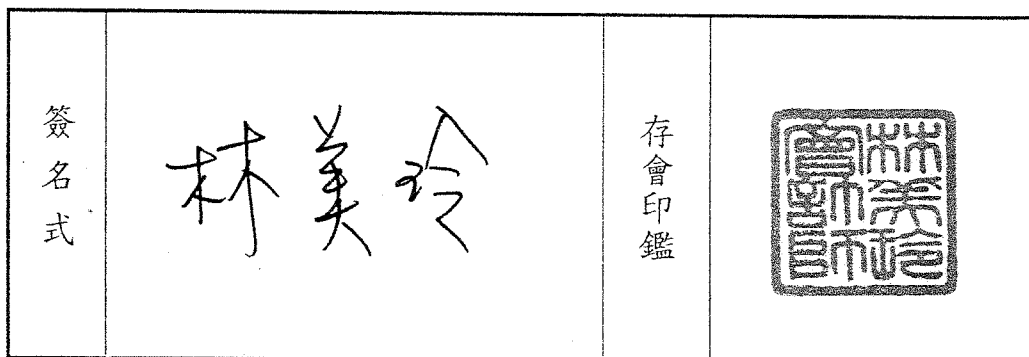 簽名式
林美玲
存會印鑑
林美玲會計師